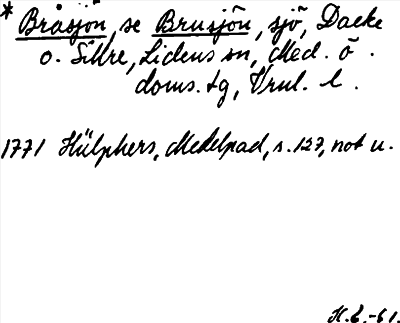 * Bråsjön, se Brusjön, sjö, Dacke
o. Sillre, Lidens sn, Med. ö.
doms. tg, Vnul. l.
1771 Hülphers, Medelpad, s. 127, not u.
H.L.-61.